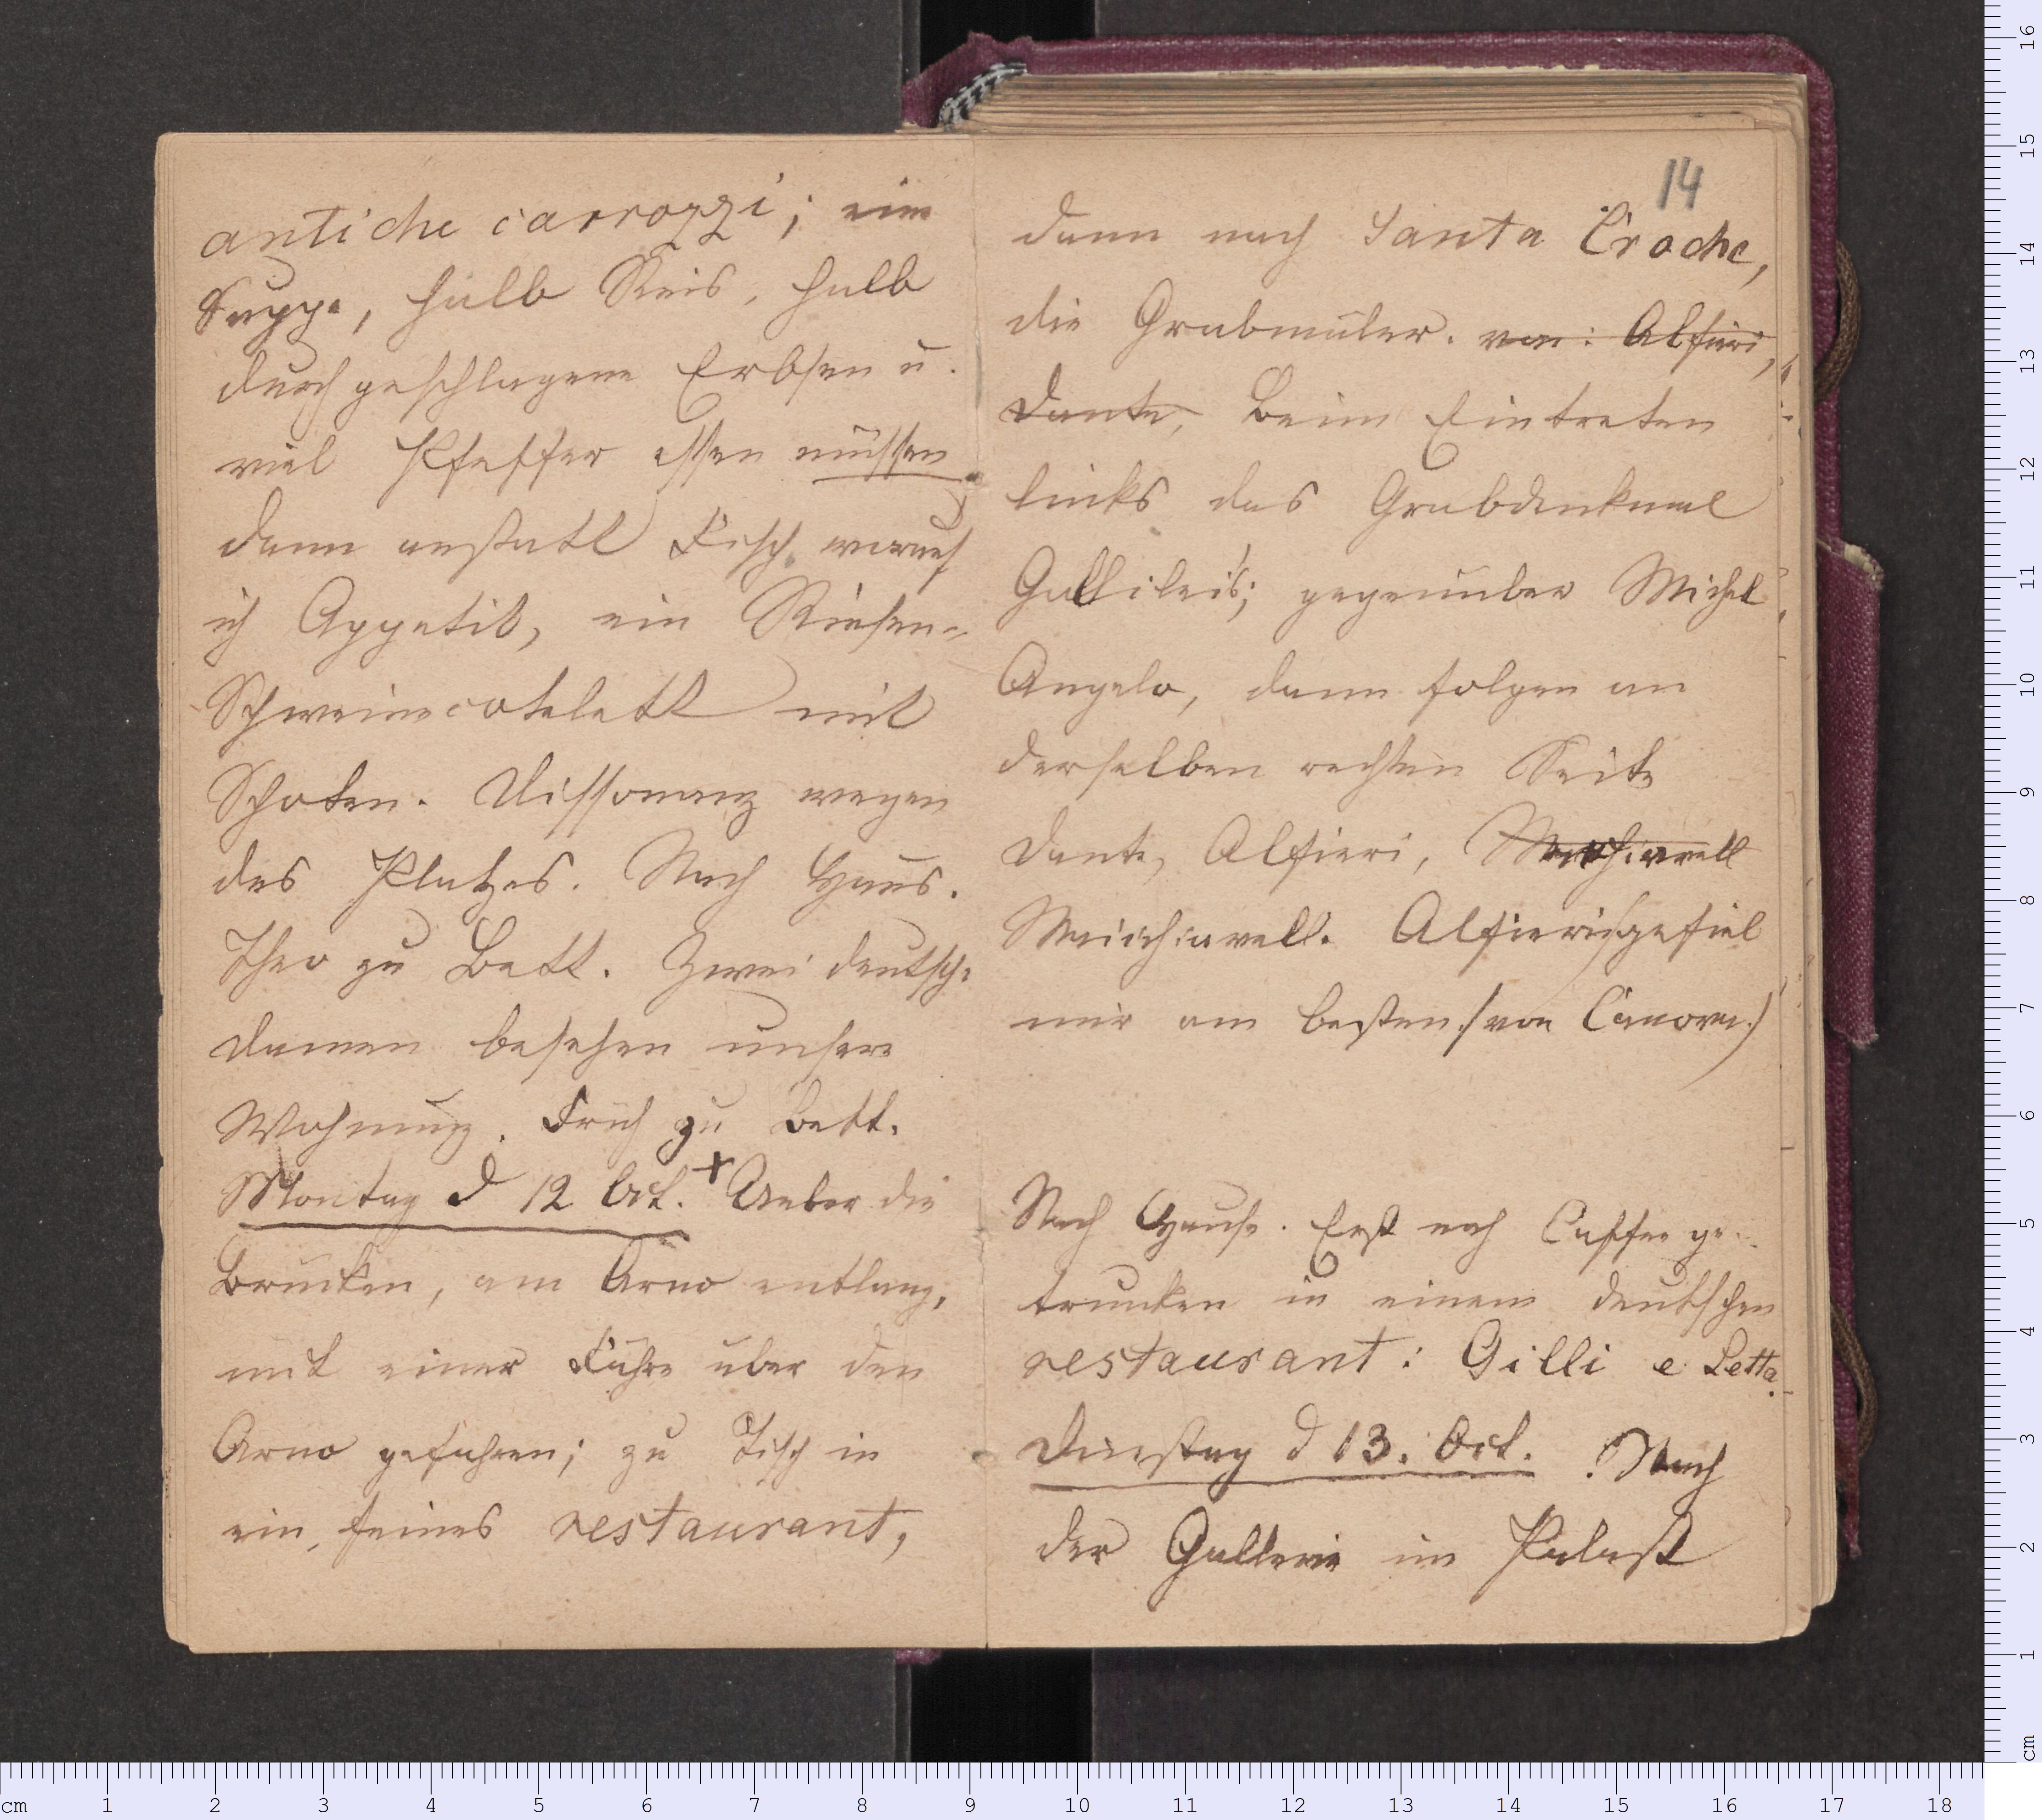 antiche carrozzi; eine
Suppe, halb Reis, halb
durchgeschlagene Erbsen u.
viel Pfeffer essen müssen
dann anstatt Fisch, worauf
ich Appetit, ein Riesen-
Schweinecotelett mit
Schoten. Dissonanz wegen
des Platzes. Nach Haus.
Theo zu Bett. Zwei deutsche
Damen besehen unsere
Wohnung. Früh zu Bett.
Montag d 12 Oct. + Ueber die
Brücken, am Arno entlang,
mit einer Fähre über den
Arno gefahren; zu Tisch in
ein feines restaurant,
14
dann nach Santa Croche,
die Grabmäler. von: Alfieri,
Dante, Beim Eintreten
links das Grabdenkmal
Gallilei's; gegenüber Michel
Angelo, dann folgen an
derselben rechten Seite
Dante, Alfieri, Machiavell
Macchiavell. Alfieri gefiel
mir am besten./von Canova./
Nach Hause. Erst noch Caffee ge-
trunken in einem deutschen
restaurant: Gilli e Letta.
Dienstag d 13. Oct. Nach
der Gallerie im Palast